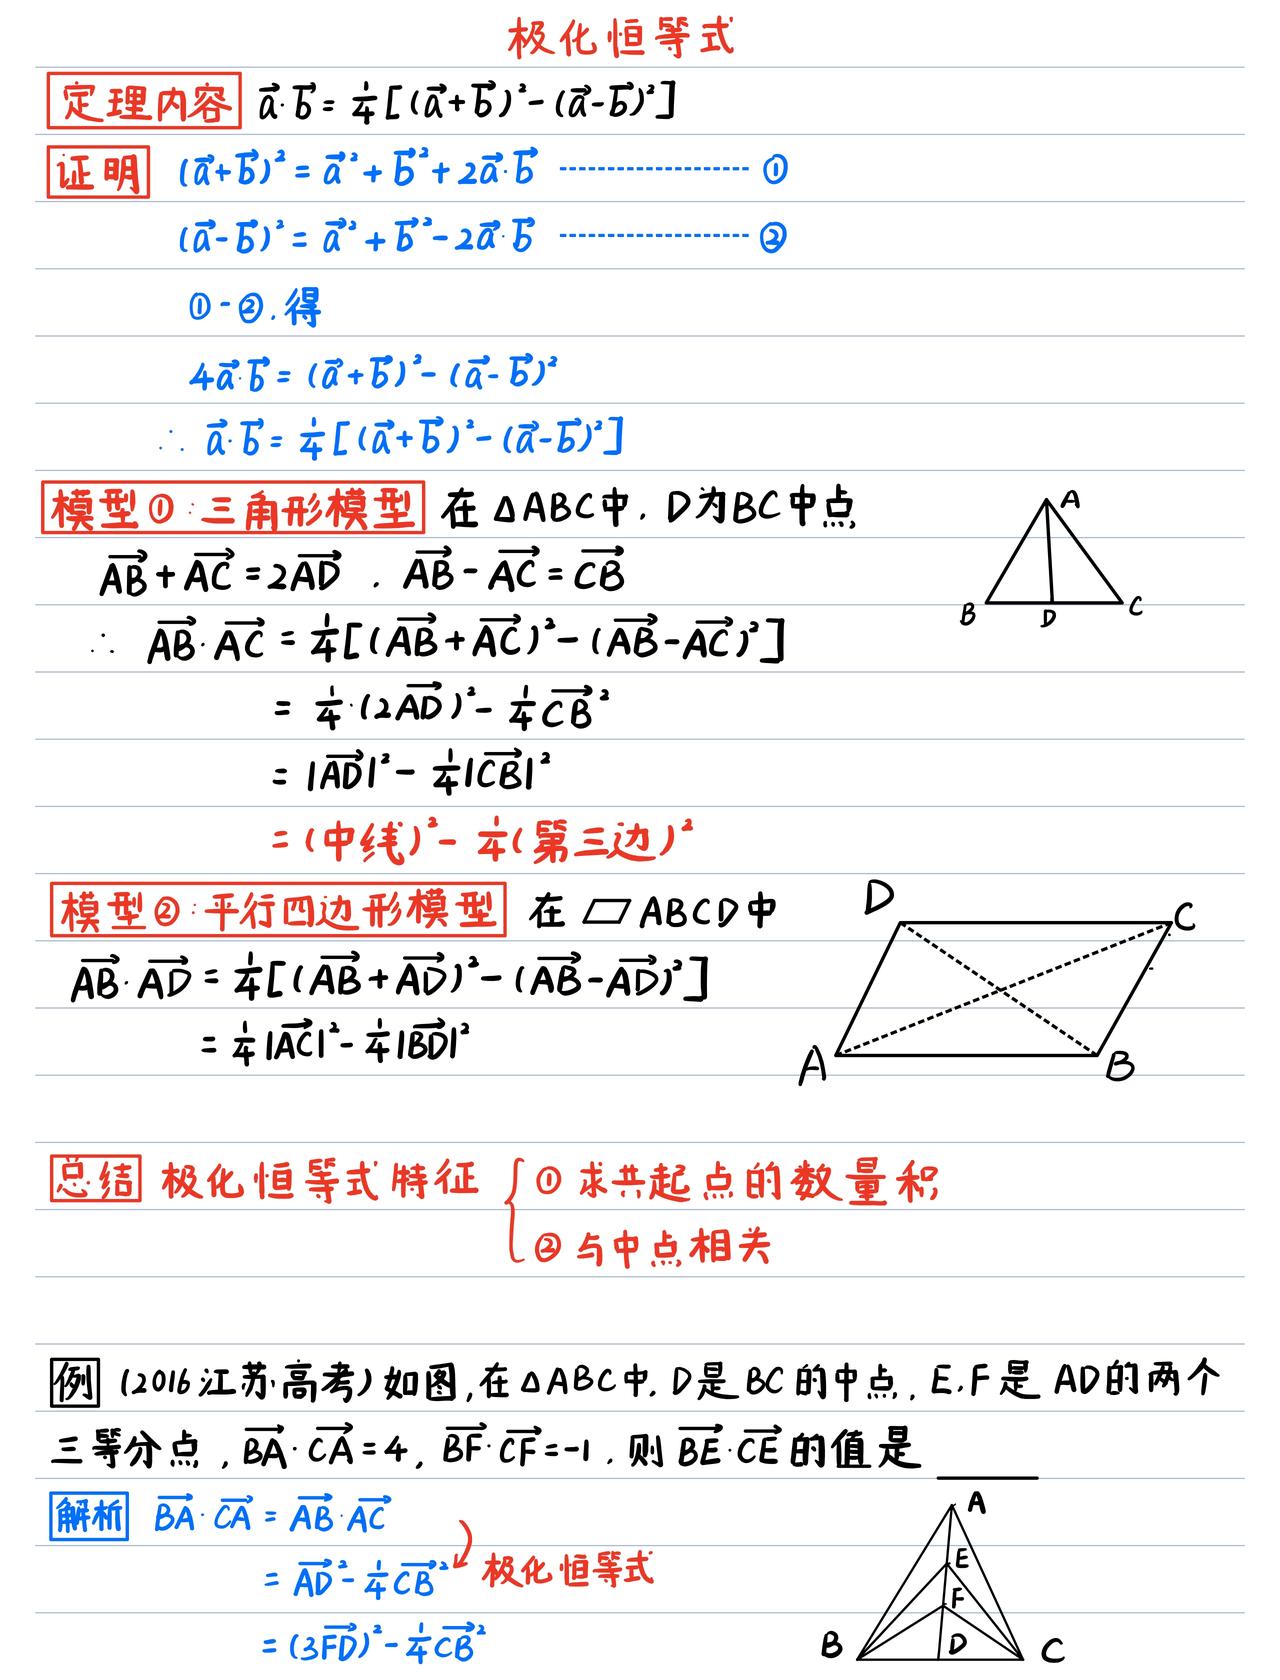 极化恒等式
定理内容 a⃗·b⃗ = 1/4[(a⃗+b⃗)²-(a⃗-b⃗)²]
证明 (a⃗+b⃗)² = a⃗²+b⃗²+2a⃗·b⃗ ------------------- ①
(a⃗-b⃗)² = a⃗²+b⃗²-2a⃗·b⃗ ------------------- ②
①-②.得
4a⃗·b⃗ = (a⃗+b⃗)²-(a⃗-b⃗)²
∴ a⃗·b⃗ = 1/4[(a⃗+b⃗)²-(a⃗-b⃗)²]
模型①:三角形模型 在△ABC中. D为BC中点
A
AB⃗+AC⃗=2AD⃗ . AB⃗-AC⃗=CB⃗
B D C
∴ AB⃗·AC⃗ = 1/4[(AB⃗+AC⃗)²-(AB⃗-AC⃗)²]
= 1/4·(2AD⃗)²-1/4CB⃗²
= |AD⃗|²-1/4|CB⃗|²
=(中线)²-1/4(第三边)²
模型②:平行四边形模型 在▱ABCD中
D C
AB⃗·AD⃗ = 1/4[(AB⃗+AD⃗)²-(AB⃗-AD⃗)²]
= 1/4|AC⃗|²-1/4|BD⃗|²
A B
总结 极化恒等式特征 { ① 求共起点的数量积
② 与中点相关
例 (2016江苏高考)如图,在△ABC中. D是BC的中点, E.F是AD的两个
三等分点, BA⃗·CA⃗=4, BF⃗·CF⃗=-1. 则BE⃗·CE⃗的值是____
解析 BA⃗·CA⃗ = AB⃗·AC⃗
= AD⃗²-1/4CB⃗² 极化恒等式
= (3FD⃗)²-1/4CB⃗²
A
E
F
B D C